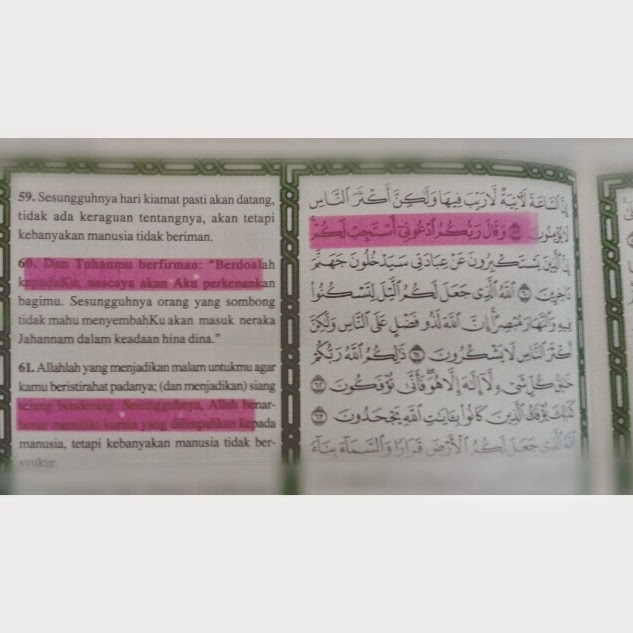 59. Sesungguhnya hari kiamat pasti akan datang,
tidak ada keraguan tentangnya, akan tetapi
kebanyakan manusia tidak beriman.
60. Dan Tuhanmu berfirman: "Berdoalah
kepadaKu, nescaya akan Aku perkenankan
bagimu. Sesungguhnya orang yang sombong
tidak mahu menyembahKu akan masuk neraka
Jahannam dalam keadaan hina dina."
61. Allahlah yang menjadikan malam untukmu agar
kamu beristirahat padanya; (dan menjadikan) siang
terang benderang. Sesungguhnya, Allah benar-
benar memiliki kurnia yang dilimpahkan kepada
manusia, tetapi kebanyakan manusia tidak ber-
syukur.
إِنَّ السَّاعَةَ لَآتِيَةٌ لَا رَيْبَ فِيهَا وَلَٰكِنَّ أَكْثَرَ النَّاسِ
لَا يُؤْمِنُونَ ٥٩ وَقَالَ رَبُّكُمُ ادْعُونِي أَسْتَجِبْ لَكُمْ
إِنَّ الَّذِينَ يَسْتَكْبِرُونَ عَنْ عِبَادَتِي سَيَدْخُلُونَ جَهَنَّمَ
دَاخِرِينَ ٦٠ اللَّهُ الَّذِي جَعَلَ لَكُمُ اللَّيْلَ لِتَسْكُنُوا
فِيهِ وَالنَّهَارَ مُبْصِرًا إِنَّ اللَّهَ لَذُو فَضْلٍ عَلَى النَّاسِ وَلَٰكِنَّ
أَكْثَرَ النَّاسِ لَا يَشْكُرُونَ ٦١ ذَٰلِكُمُ اللَّهُ رَبُّكُمْ
خَالِقُ كُلِّ شَيْءٍ لَا إِلَٰهَ إِلَّا هُوَ فَأَنَّىٰ تُؤْفَكُونَ ٦٢
كَذَٰلِكَ يُؤْفَكُ الَّذِينَ كَانُوا بِآيَاتِ اللَّهِ يَجْحَدُونَ ٦٣
اللَّهُ الَّذِي جَعَلَ لَكُمُ الْأَرْضَ قَرَارًا وَالسَّمَاءَ بِنَاءً